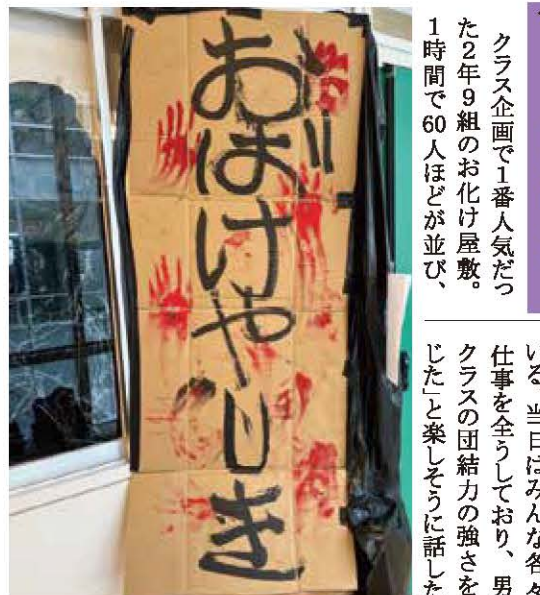 おばけやしき
クラス企画で1番人気だっ
た2年9組のお化け屋敷。
1時間で60人ほどが並び、
いる。当日はみんな各々
仕事を全うしており、男
クラスの団結力の強さを
じた」と楽しそうに話した